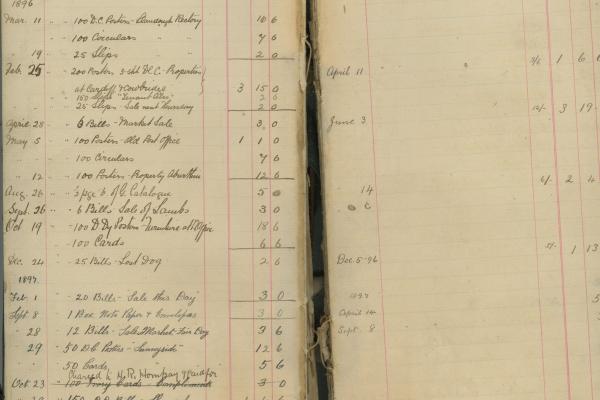 1896
Mar. 11 " 100 D.C. Posters - Llandough Rectory 10 6
" " 100 Circulars " " 7 6
" 19 " 25 Slips " " 2 0
Feb. 25 " 200 Posters 3-sht D.C. - Properties
at Cardiff & Cowbridge 3 15 0
150 Slips 2 6
25 Slips - Sale next Thursday 2 0
April 28 " 6 Bills - Market Sale 3 0
May 5 " 100 Posters - Old Post Office 1 1 0
" " 100 Circulars 7 6
" 12 " 100 Posters - Property 12 6
Aug. 26 " ½ pge 6 of G Catalogue 5
Sept. 26 " 6 Bills Sale of Lambs 3 0
Oct 19 " 100 D Dy Posters - Furniture at 18 6
" " 100 Cards 6 6
Dec. 24 " 25 Bills - Lost Dog 2 6
1897
Feb 1 " 20 Bills - Sale this Day 3 0
Sept 8 " 1 Box Note Paper & Envelopes 3 0
" 28 " 12 Bills - Sale Market Fair Day 3 6
" 29 " 50 D.C. Posters - "Sunnyside" 12 6
" " 50 Cards 5 6
Charged to H.R. & paid for
Oct 23 " 100 Ivory Cards - Compliments 3 0
April 11 1 6
June 3 3 19
14 2 4
Dec. 5-96 1 13
1897
April 14
Sept. 8